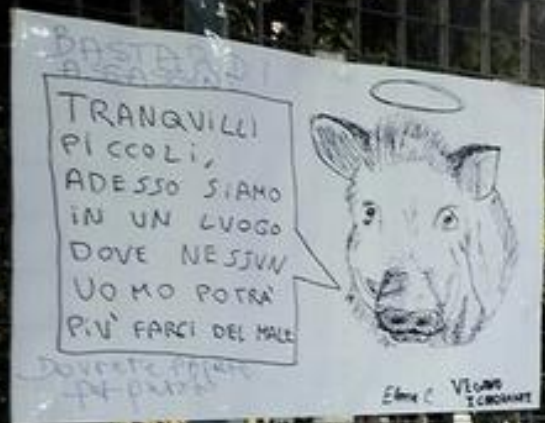 BASTARDI
TRANQUILLI
PICCOLI,
ADESSO SIAMO
IN UN LUOGO
DOVE NESSUN
UOMO POTRÀ
PIÙ FARCI DEL MALE
DOVRETE
Elena C
VEGANO
IGNORANTE